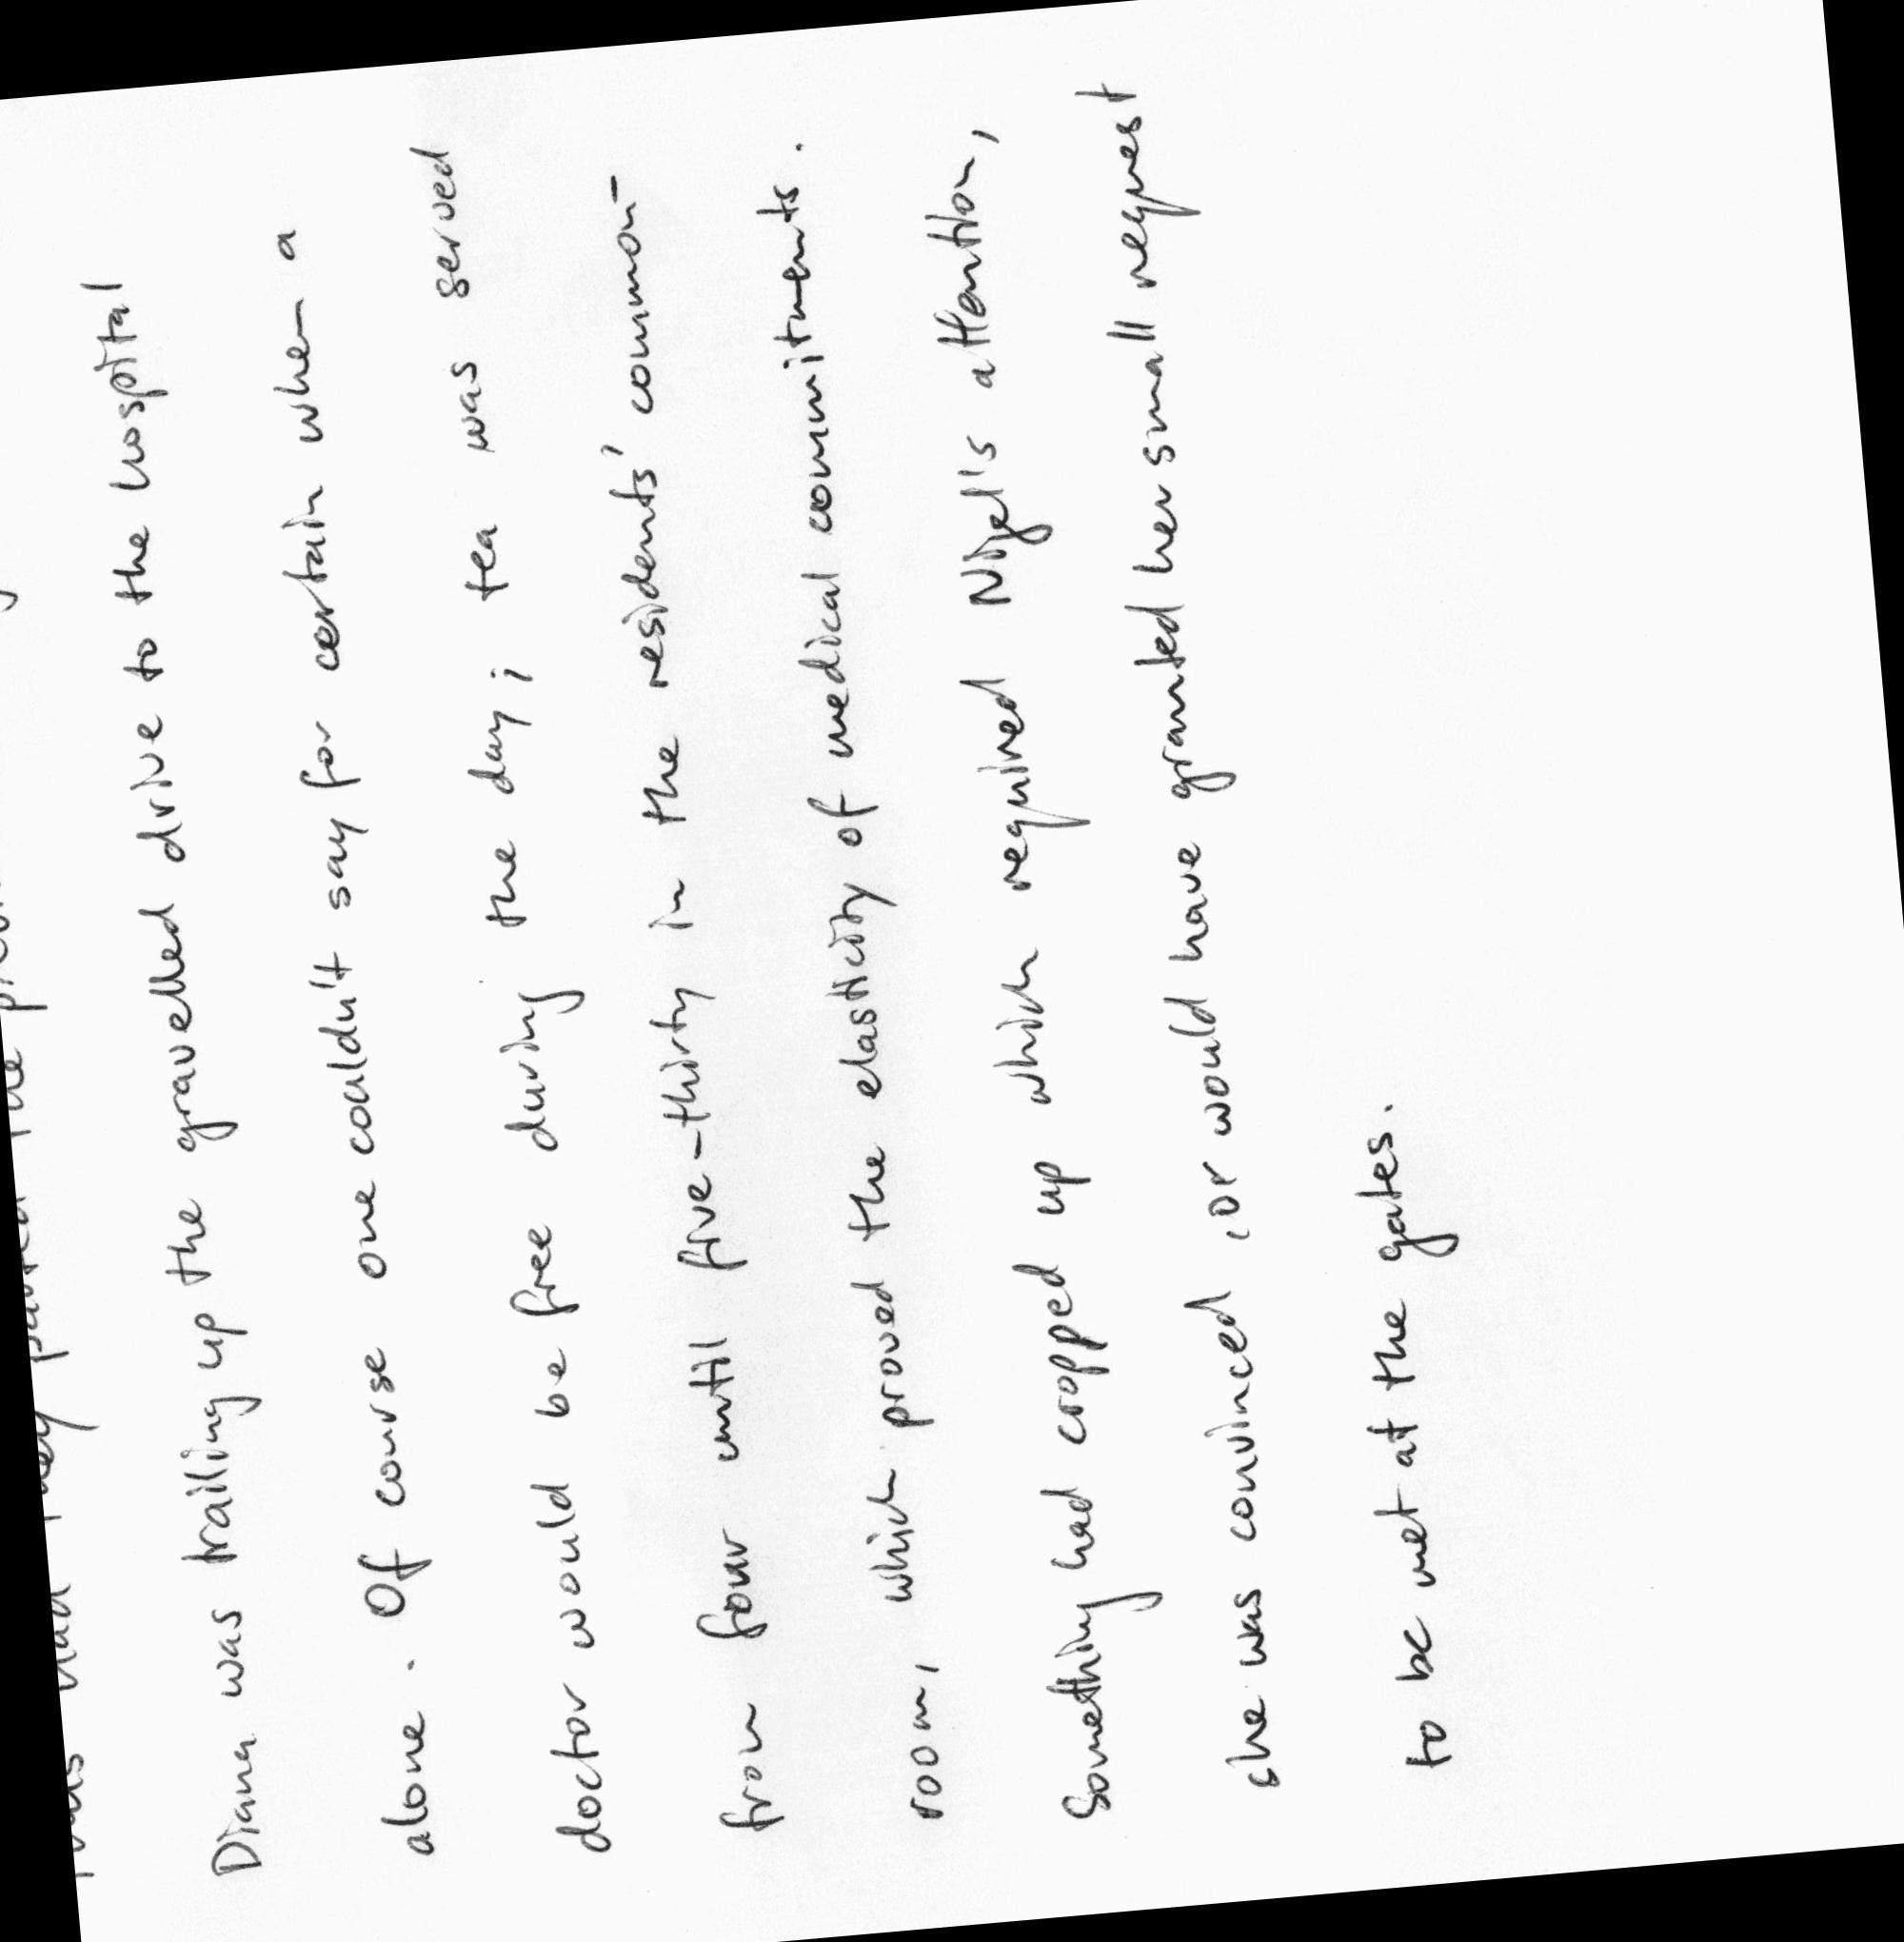 had they parted the
Diana was trailing up the gravelled drive to the hospital
alone. Of course one couldn't say for certain when a
doctor would be free during the day; tea was served
from four until five-thirty in the residents' common-
room, which proved the elasticity of medical commitments.
Something had cropped up which required Nigel's attention,
she was convinced, or would have granted her small request
to be met at the gates.